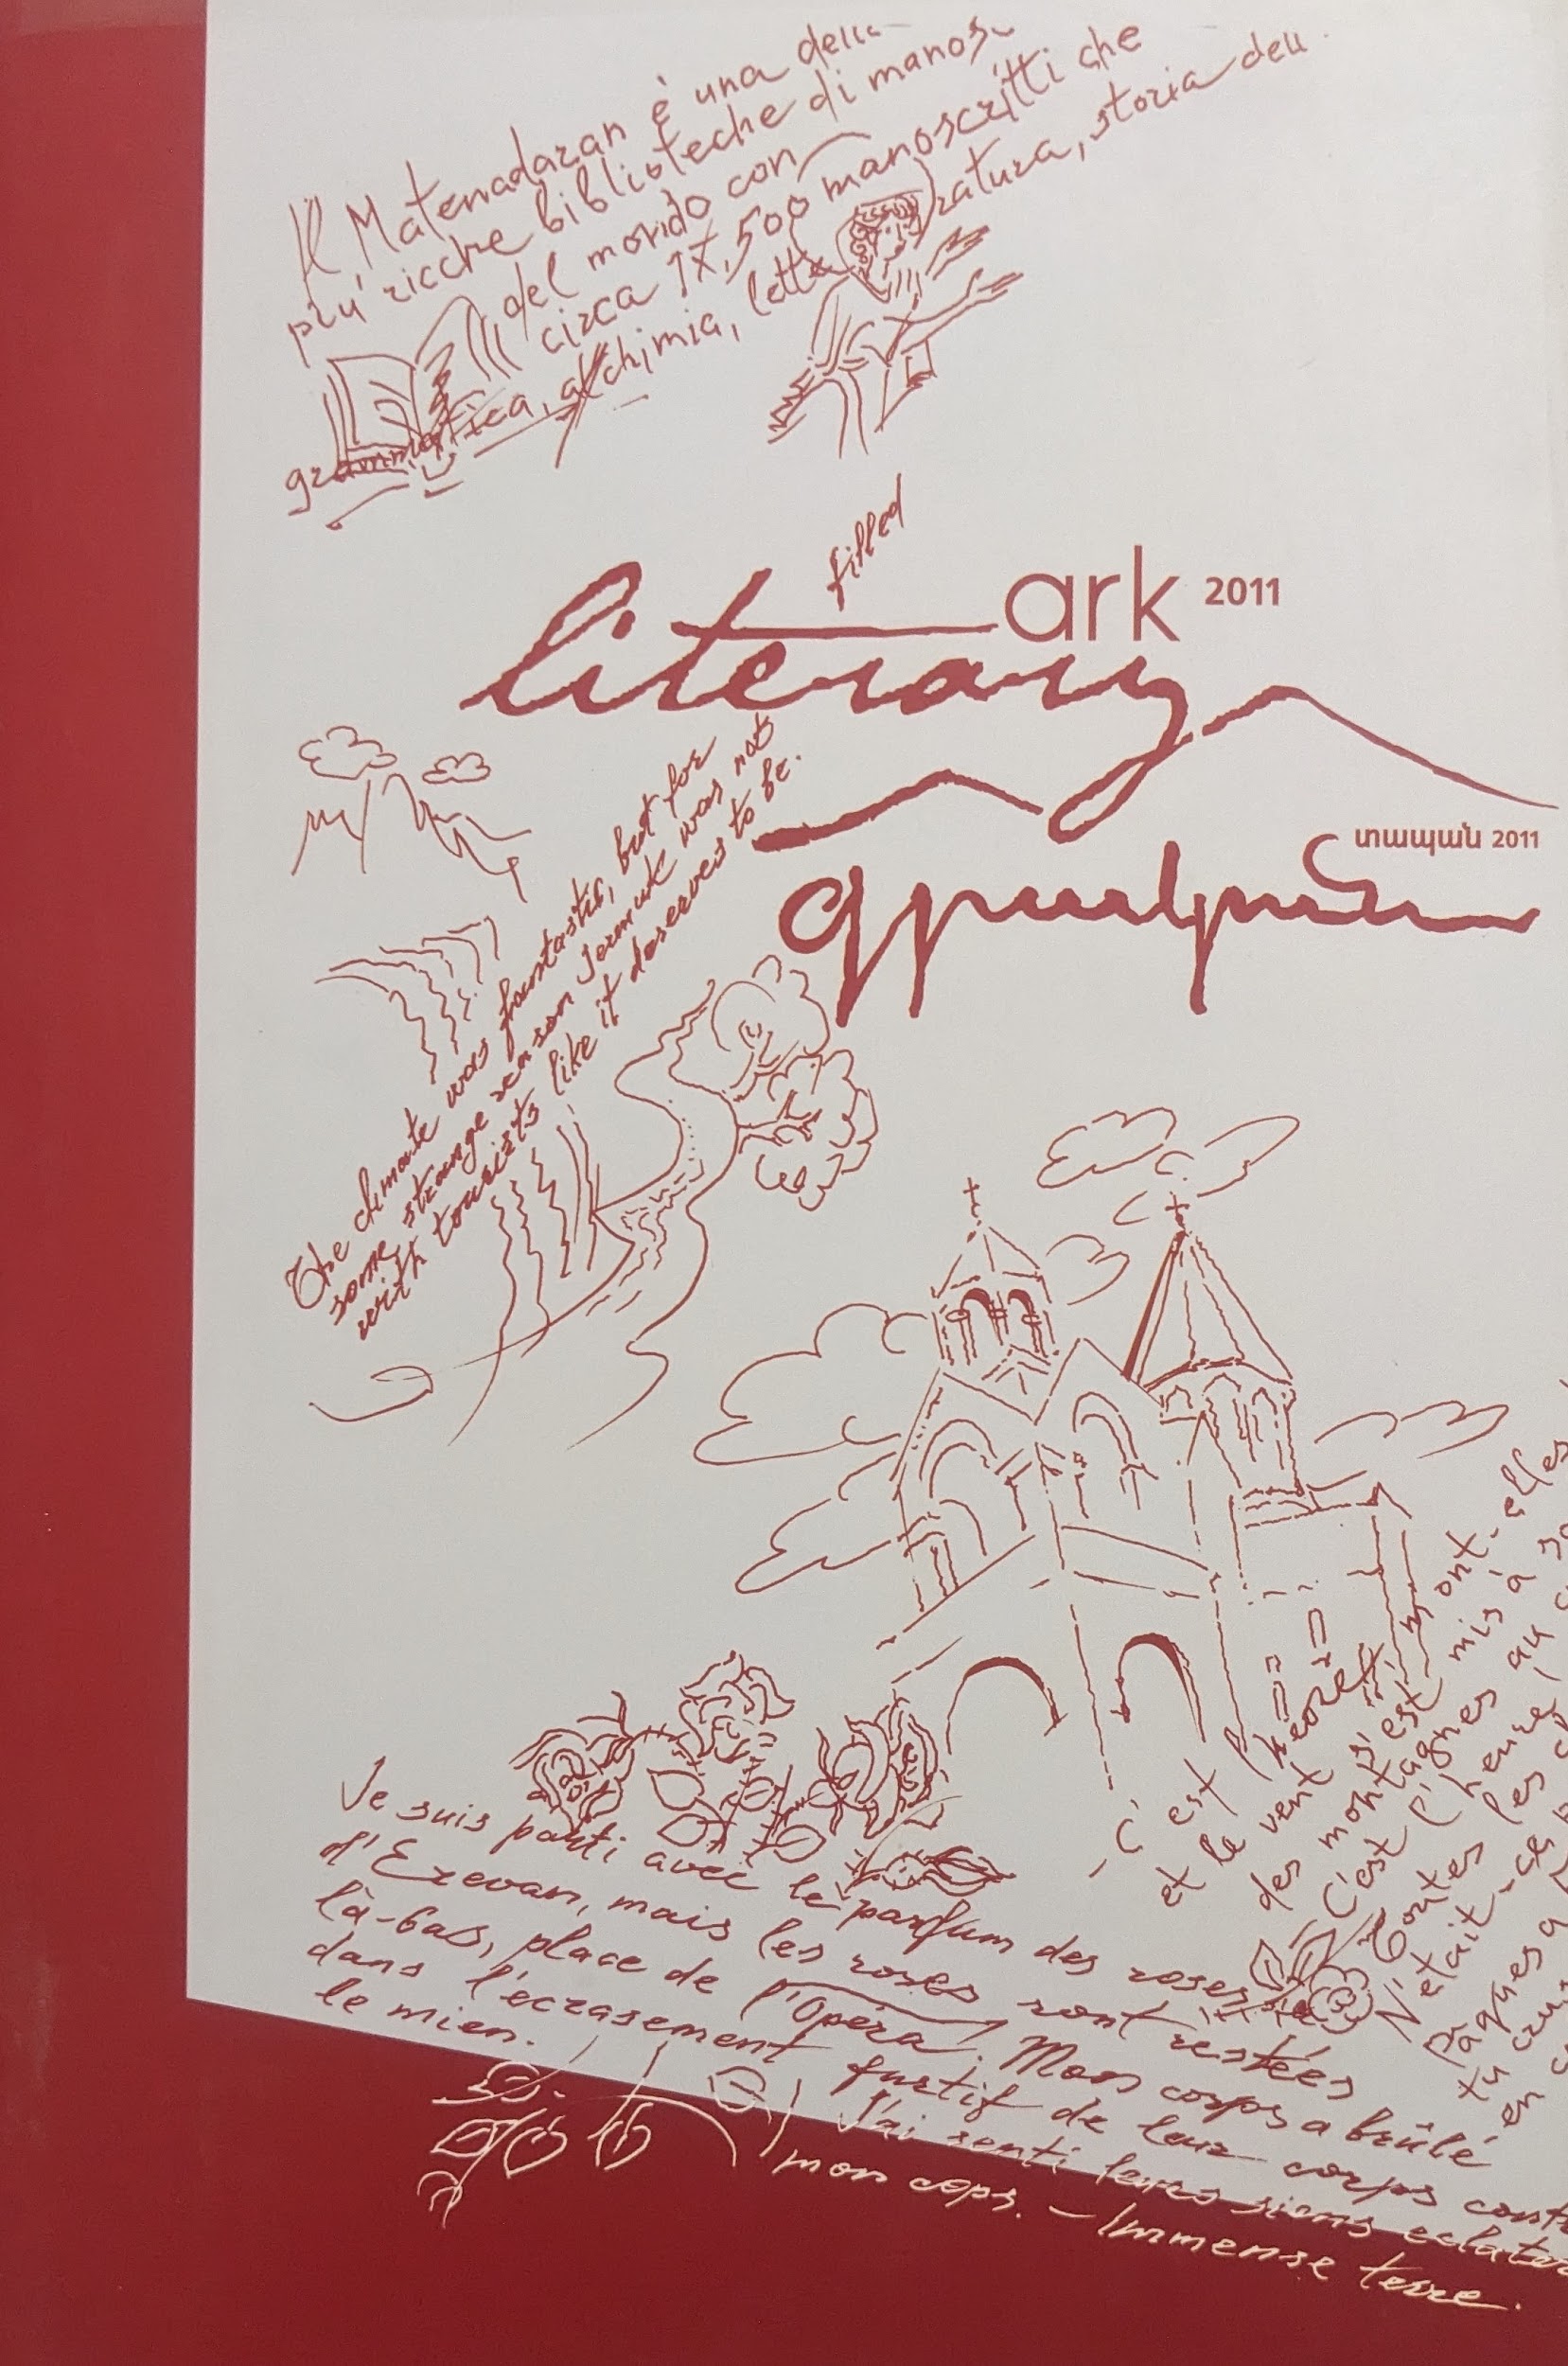 Il Matenadaran è una delle
più ricche biblioteche di manos
del mondo con
circa 17,500 manoscritti che
grammatica, alchimia, lette ratura, storia dell
filled
ark 2011
literary
տապան 2011
գրական
The climate was fantastic, but for
some strange reason Jermuk was not
with tourists like it deserves to be.
Je suis parti avec le parfum des roses
d'Erevan, mais les roses sont restées
là-bas, place de l'Opéra. Mon corps a brûlé
dans l'écrasement furtif de leur corps cont
le mien. J'ai senti leurs siens eclater
mon cops. – Immense terre.
- C'est l' mont-elles
et le vent s'est mis à
des montagnes au
C'est l'heure,
toutes les
N'était-ce
Pâques
tu
en